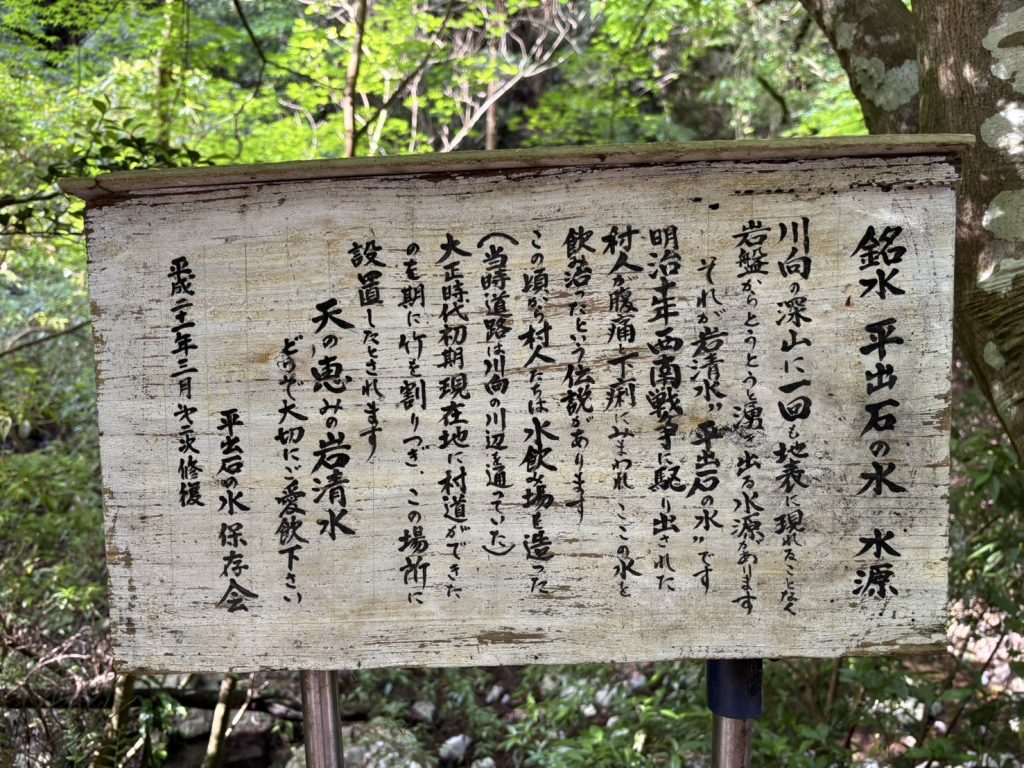 銘水 平出石の水 水源
川向の深山に一回も地表に現れることなく
岩盤からとうとうと湧き出る水源があります
それが岩清水〝平出石の水〟です
明治十年西南戦争に駆り出された
村人が腹痛下痢にみまわれ ここの水を
飲み治ったという伝説があります
この頃から村人たちは水飲み場を造った
(当時道路は川向の川辺を通っていた)
大正時代初期現在地に村道ができた
のを期に竹を割りつぎ、この場所に
設置したとされます
天の恵みの岩清水
どうぞ大切にご愛飲下さい
平出石の水保存会
平成二十一年三月 次修復